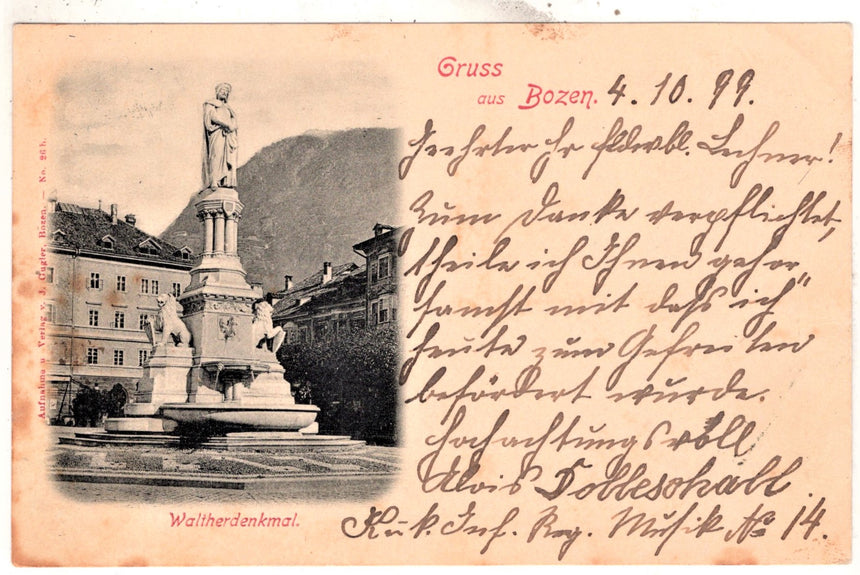 Gruss
aus Bozen. 4. 10. 99.
Geehrter Hr fldwbl. Lechner!
Zum Danke verpflichtet,
theile ich Ihnen gehor
samst mit daſs ich
heute zum Gefreiten
befördert wurde.
Hochachtungsvoll
Alois
K. u. k. Inf. Reg. Musik No 14.
Waltherdenkmal.
Aufnahme u Verlag v. J. Gugler, Bozen. — No. 26 b.